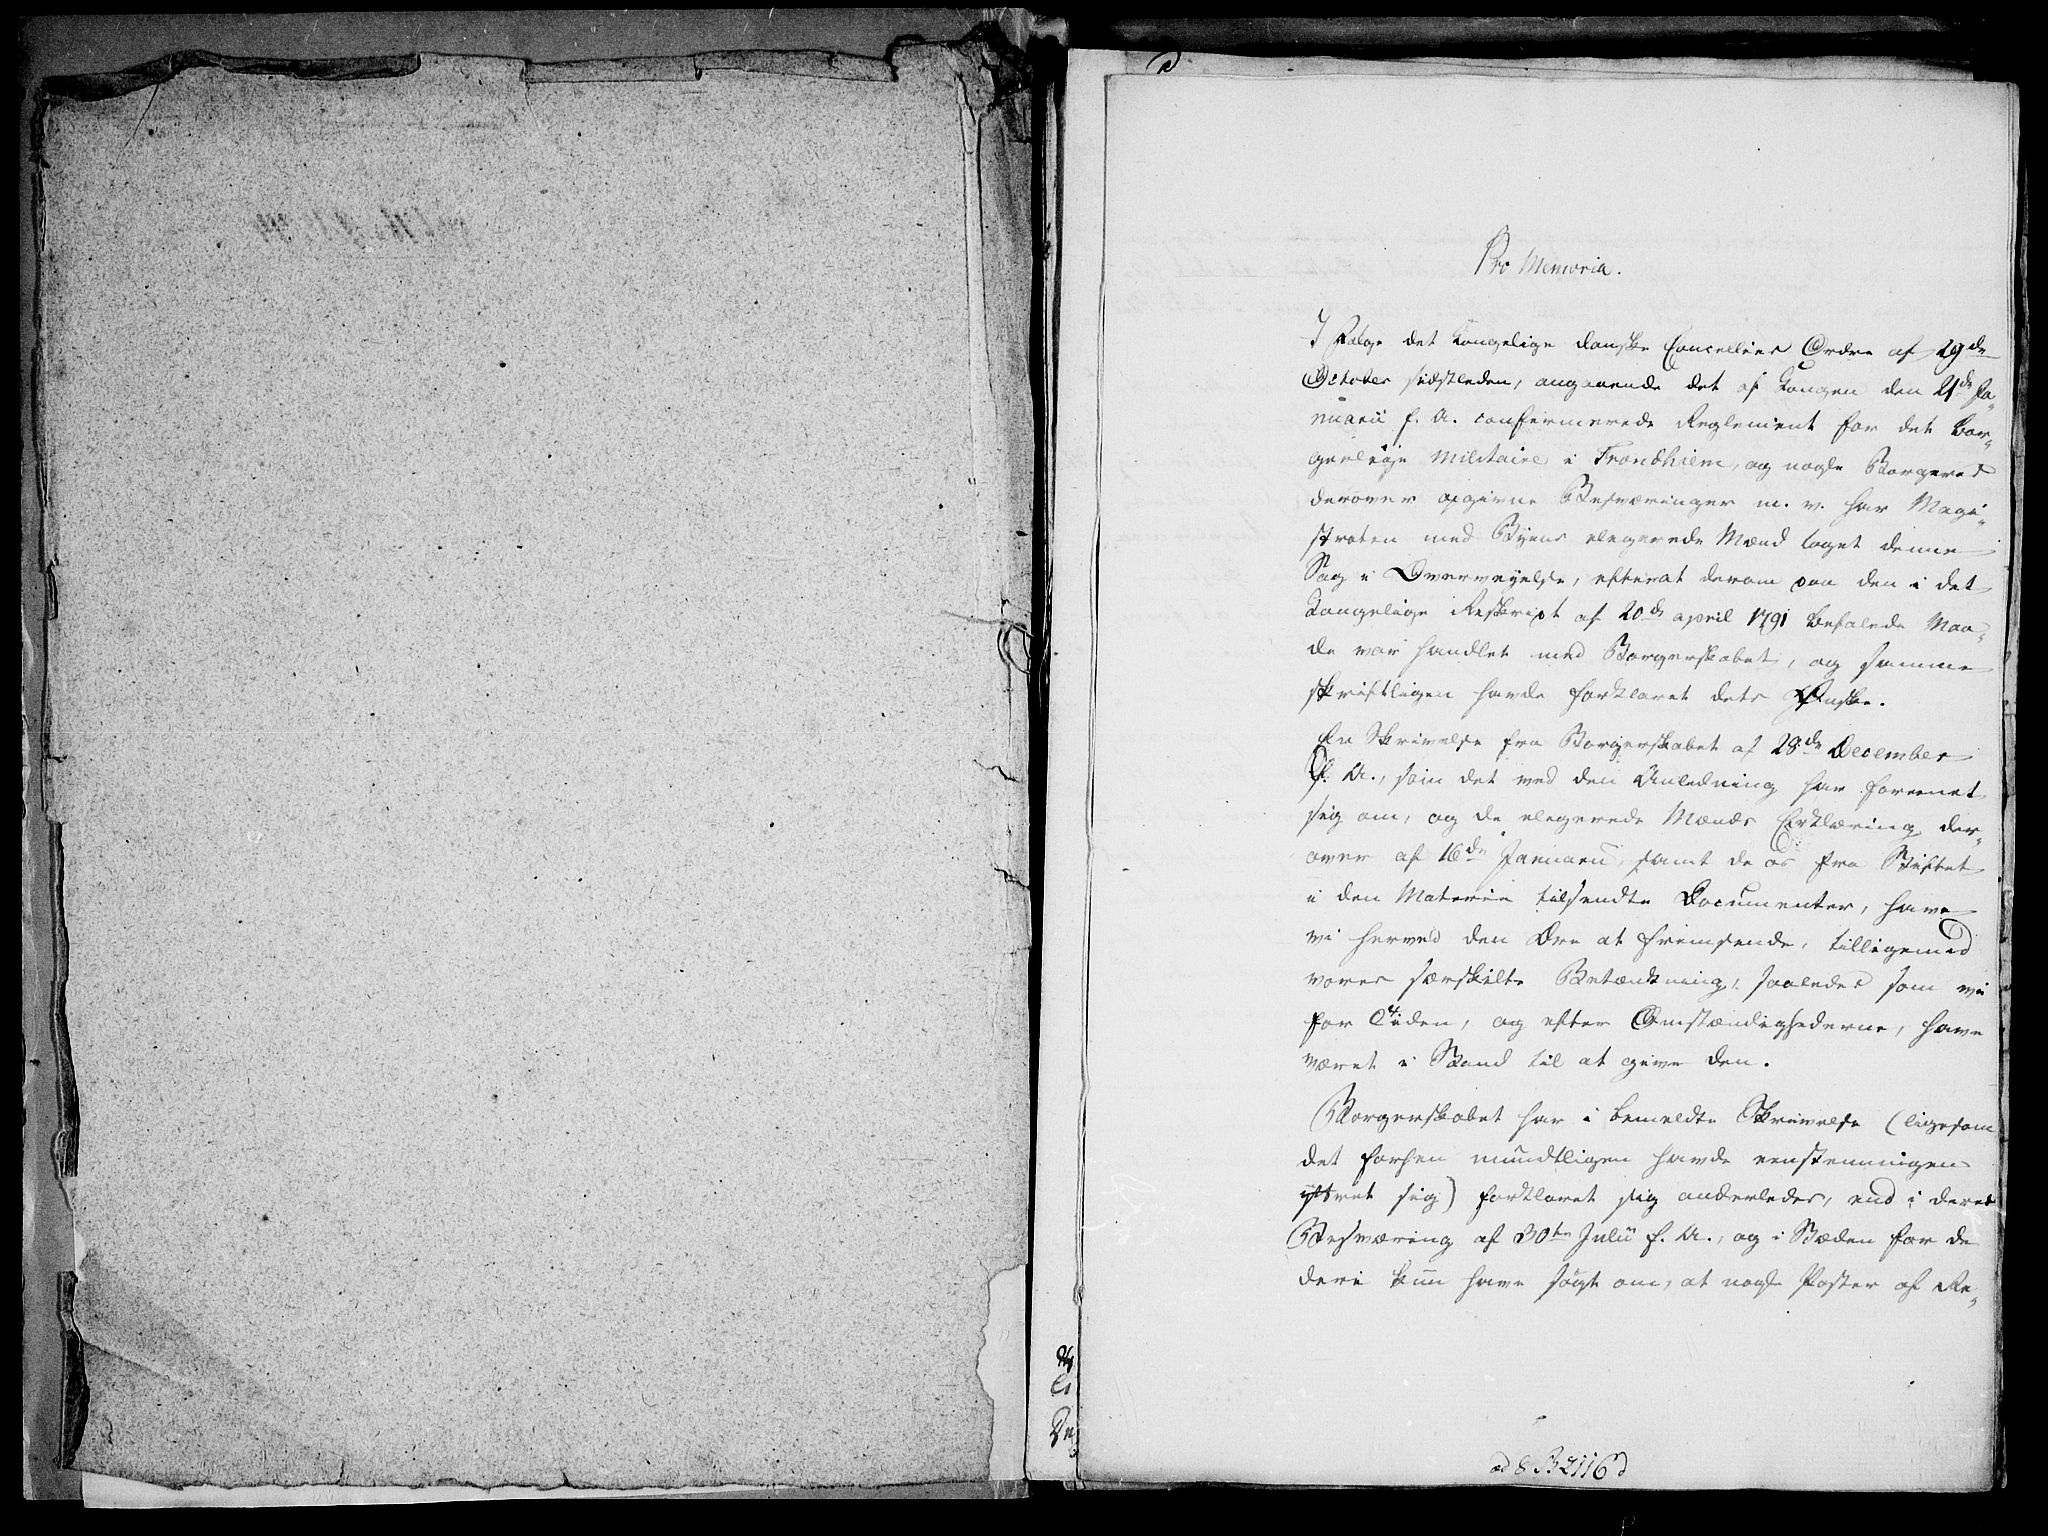 Pro Memoria.
I Følge det Kongelige danske Cancellies Ordre af 29de
October sidstleden, angaaende det af Kongen den 21de Ja-
nuarii f. A. confirmerede Reglement for det bor-
gerlige Militaire i Trondhiem, og nogle Borgeres
derover opgivne Besværinger m. v. har Magi-
straten med Byens elegerede Mænd taget denne
Sag i Overveyelse, efterat derom paa den i det
Kongelige Reskript af 20de april 1791 befalede Maa-
de var handlet med Borgerskabet, og samme
skriftligen havde forklaret dets Ønske.
En Skrivelse fra Borgerskabet af 28de December
f. A., som det ved den Anledning har foreenet
sig om, og de elegerede Mænds Erklæring der-
over af 16de Januarii, samt de os fra Stiftet
i den Materie tilsendte Documenter, have
vi herved den Ære at fremsende, tilligemed
vores særskilte Betænkning, saaledes som vi
for Tiden, og efter Omstændighederne, have
været i Stand til at give den.
Borgerskabet har i bemeldte Skrivelse (ligesom
det forhen mundtligen havde eenstemmigen
yttret sig) forklaret sig anderledes, end i deres
Besværing af 30te Julii f. A., og i Stæden for de
deri kun have søgt om, at nogle Poster af Re-
ad 8 B 2116 d